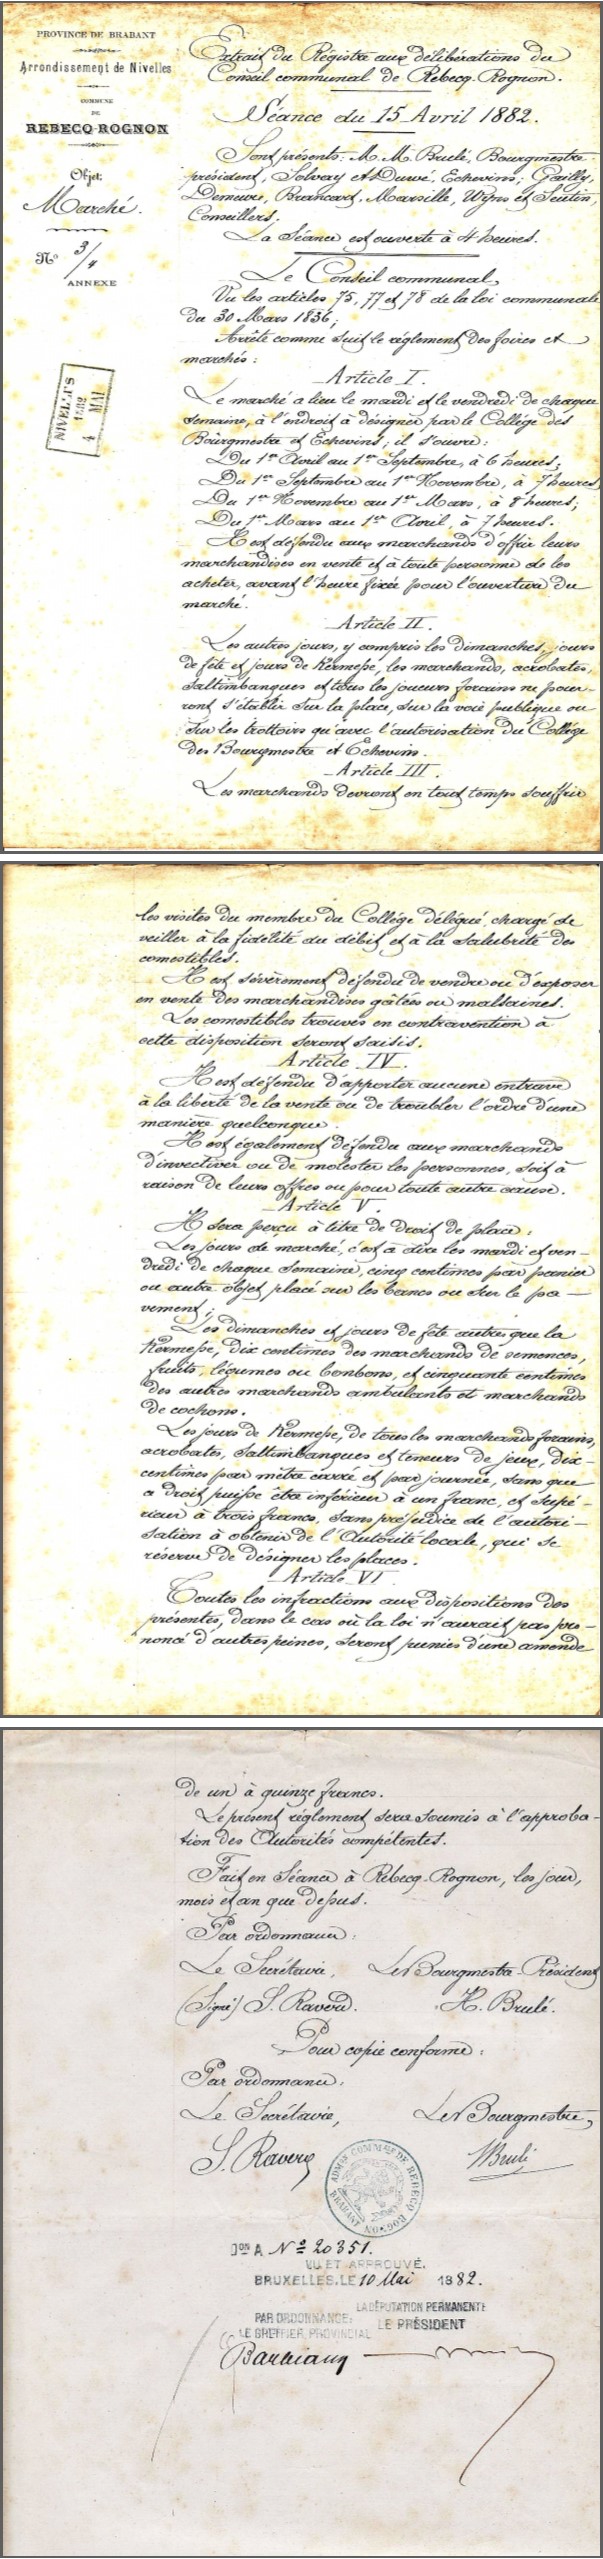 PROVINCE DE BRABANT
Arrondissement de Nivelles
COMMUNE
DE
REBECQ-ROGNON
Objet:
Marché.
N° 3/4
ANNEXE
NIVELLES
1882
4 MAI
Extrait du Régistre aux délibérations du
Conseil communal de Rebecq-Rognon.
Séance du 15 Avril 1882.
Sont présents: M.M. Brulé, Bourgmestre
président, Solvay et Duwé, Echevins; Gailly,
Demeure, Brancart, Marsille, Wyns et Seutin,
Conseillers.
La Séance est ouverte à 4 heures.
Le Conseil communal,
Vu les articles 75, 77 et 78 de la loi communale
du 30 Mars 1836;
Arrête comme suit le réglement des foires et
marchés:
Article I.
Le marché a lieu le mardi et le vendredi de chaque
semaine, à l'endroit à désigner par le Collége des
Bourgmestre et Echevins; il s'ouvre:
Du 1er Avril au 1er Septembre, à 6 heures;
Du 1er Septembre au 1er Novembre, à 7 heures;
Du 1er Novembre au 1er Mars, à 8 heures;
Du 1er Mars au 1er Avril, à 7 heures.
Il est défendu aux marchands d'offrir leurs
marchandises en vente et à toute personne de les
acheter, avant l'heure fixée pour l'ouverture du
marché.
Article II.
Les autres jours, y compris les dimanches, jours
de fête et jours de Kermesse, les marchands, acrobates,
saltimbanques et tous les joueurs forains ne pour-
ront s'établir sur la place, sur la voie publique ou
sur les trottoirs qu'avec l'autorisation du Collége
des Bourgmestre et Echevins.
Article III.
Les marchands devront en tout temps souffrir
les visites du membre du Collége délégué, chargé de
veiller à la fidélité du débit et à la salubrité des
comestibles.
Il est sévèrement défendu de vendre ou d'exposer
en vente des marchandises gâtées ou malsaines.
Les comestibles trouvés en contravention à
cette disposition seront saisis.
Article IV.
Il est défendu d'apporter aucune entrave
à la liberté de la vente ou de troubler l'ordre d'une
manière quelconque.
Il est également défendu aux marchands
d'invectiver ou de molester les personnes, soit à
raison de leurs offres ou pour toute autre cause.
Article V.
Il sera perçu à titre de droit de place:
Les jours de marché, c'est à dire les mardi et ven-
dredi de chaque semaine, cinq centimes par panier
ou autre objet placé sur les bancs ou sur le pa-
vement;
Les dimanches et jours de fête autres que la
Kermesse, dix centimes des marchands de semences,
fruits, légumes ou bonbons, et cinquante centimes
des autres marchands ambulants et marchands
de cochons.
Les jours de Kermesse, de tous les marchands forains,
acrobates, saltimbanques et teneurs de jeux, dix
centimes par mètre carré et par journée, sans que
ce droit puisse être inférieur à un franc, et supé-
rieur à trois francs, sans préjudice de l'autori-
sation à obtenir de l'Autorité locale, qui se
réserve de désigner les places.
Article VI.
Toutes les infractions aux dispositions des
présentes, dans le cas où la loi n'aurait pas pro-
noncé d'autres peines, seront punies d'une amende
de un à quinze francs.
Le présent réglement sera soumis à l'approba-
tion des Autorités compétentes.
Fait en Séance à Rebecq-Rognon, les jour,
mois et an que dessus.
Par ordonnance:
Le Secrétaire, Le Bourgmestre-Président
(Signé) S. Raverd. H. Brulé.
Pour copie conforme:
Par ordonnance:
Le Secrétaire, Le Bourgmestre,
S. Raverd HBrulé
ADMON COMMALE DE REBECQ ROGNON
BRABANT
Don A N° 20351.
VU ET APPROUVÉ.
BRUXELLES, LE 10 Mai 1882.
LA DÉPUTATION PERMANENTE
PAR ORDONNANCE: LE PRÉSIDENT
LE GREFFIER PROVINCIAL
Barbiaux